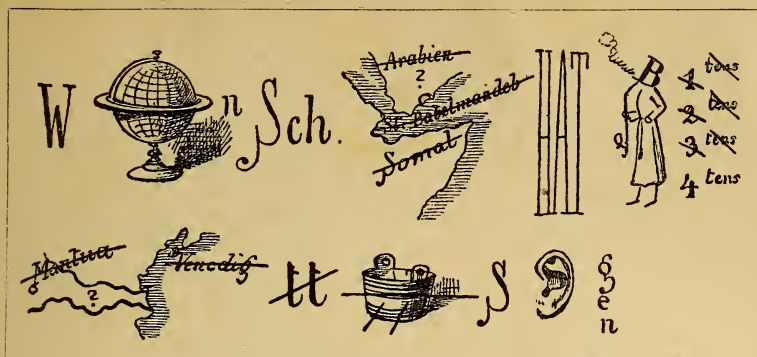 W n Sch.
Arabien
?
Babelmandeb
Somal
HAT
B
1 tens
2 tens
3 tens
4 tens
Mantua
?
Venedig
tt S
g
e
n